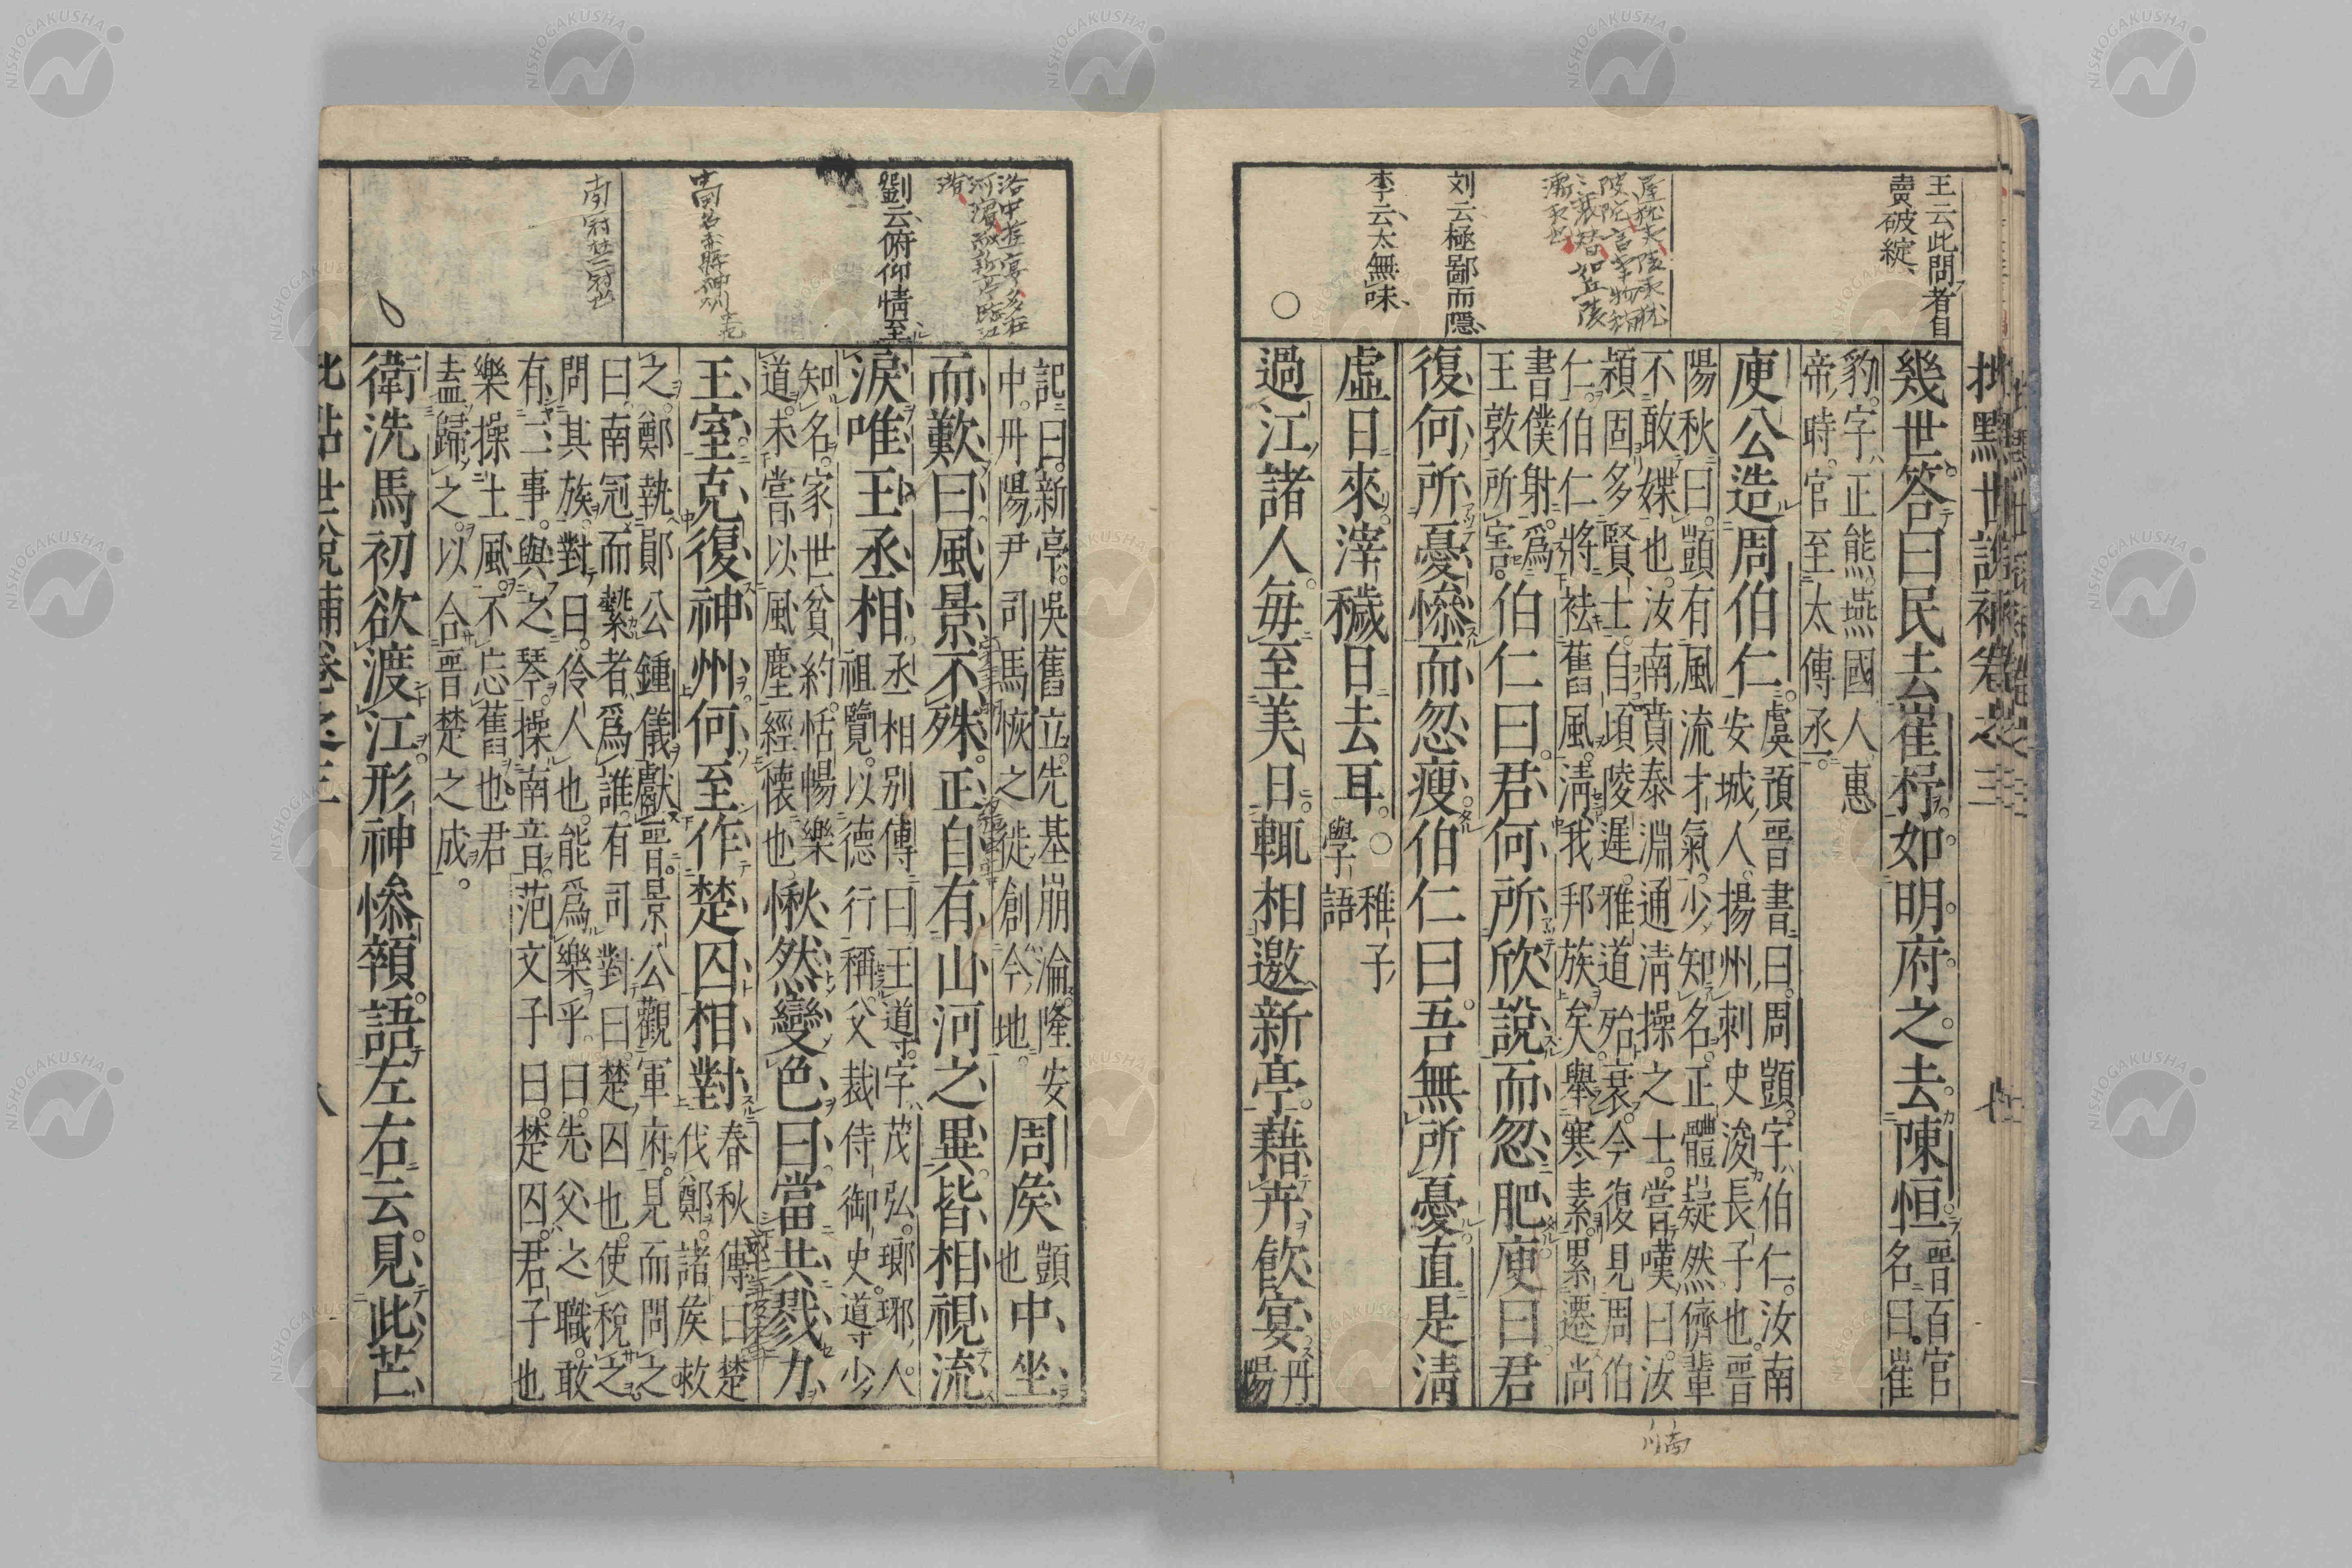 批點世說補卷之三
幾世答曰民去崔杼如明府之去陳恒晉百官名曰崔
豹字正熊燕國人惠
帝時官至太傅丞
庾公造周伯仁虞預晉書曰周顗字伯仁汝南
安城人揚州刺史浚長子也晉
陽秋曰顗有風流才氣少知名正體嶷然儕輩
不敢媟也汝南賁泰淵通清操之士嘗嘆曰汝
潁固多賢士自頃陵遲雅道殆衰今復見周伯
仁伯仁將袪舊風清我邦族矣舉寒素累遷尚
書僕射爲
王敦所害伯仁曰君何所欣說而忽肥庾曰君
復何所憂慘而忽瘦伯仁曰吾無所憂直是清
虛日來滓穢日去耳○稚子
學語
過江諸人每至美日輒相邀新亭藉卉飲宴丹
陽
王云此問者自
賣破綻
刘云極鄙而隱
李云太無味
○
記曰新亭吳舊立先基崩淪隆安
中丹陽尹司馬恢之徙創今地周矦顗
也中坐
而歎曰風景不殊正自有山河之異皆相視流
淚唯王丞相丞相別傳曰王導字茂弘瑯琊人
祖覽以德行稱父裁侍御史導少
知名家世貧約恬暢樂
道未嘗以風塵經懷也愀然變色曰當共戮力
王室克復神州何至作楚囚相對春秋傳曰楚
伐鄭諸矦救
之鄭執鄖公鍾儀獻晉景公觀軍府見而問之
曰南冠而縶者爲誰有司對曰楚囚也使稅之
問其族對曰伶人也能爲樂乎曰先父之職敢
有二事與之琴操南音范文子曰楚囚君子也
樂操土風不忘舊也君
盍歸之以合晉楚之成
衛洗馬初欲渡江形神慘顇語左右云見此芒
劉云俯仰情至
南冠楚冠也